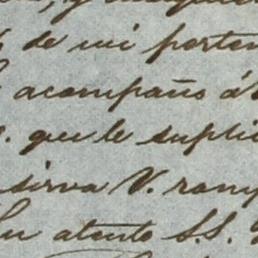 de mi porten
acompaño á
que le suplic
sirva V. rany
Su atento S.S.